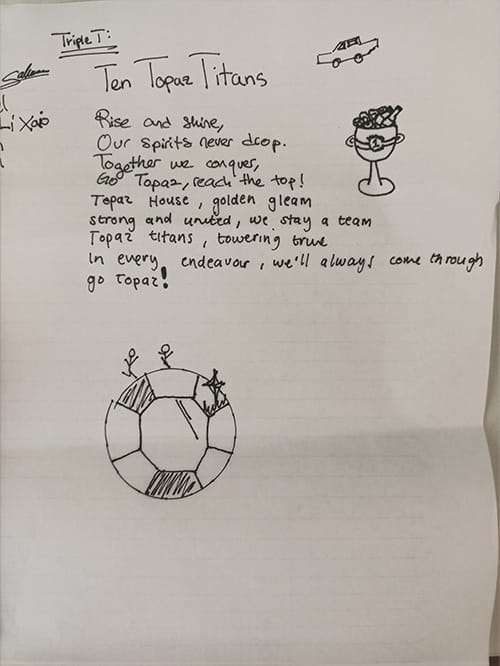 Triple T:
Ten Topaz Titans
Li Xaio
Rise and shine,
Our spirits never drop.
Together we conquer,
Go Topaz, reach the top!
1
Topaz House, golden gleam
strong and united, we stay a team
Topaz titans, towering true
In every endeavour, we'll always come through
go Topaz!